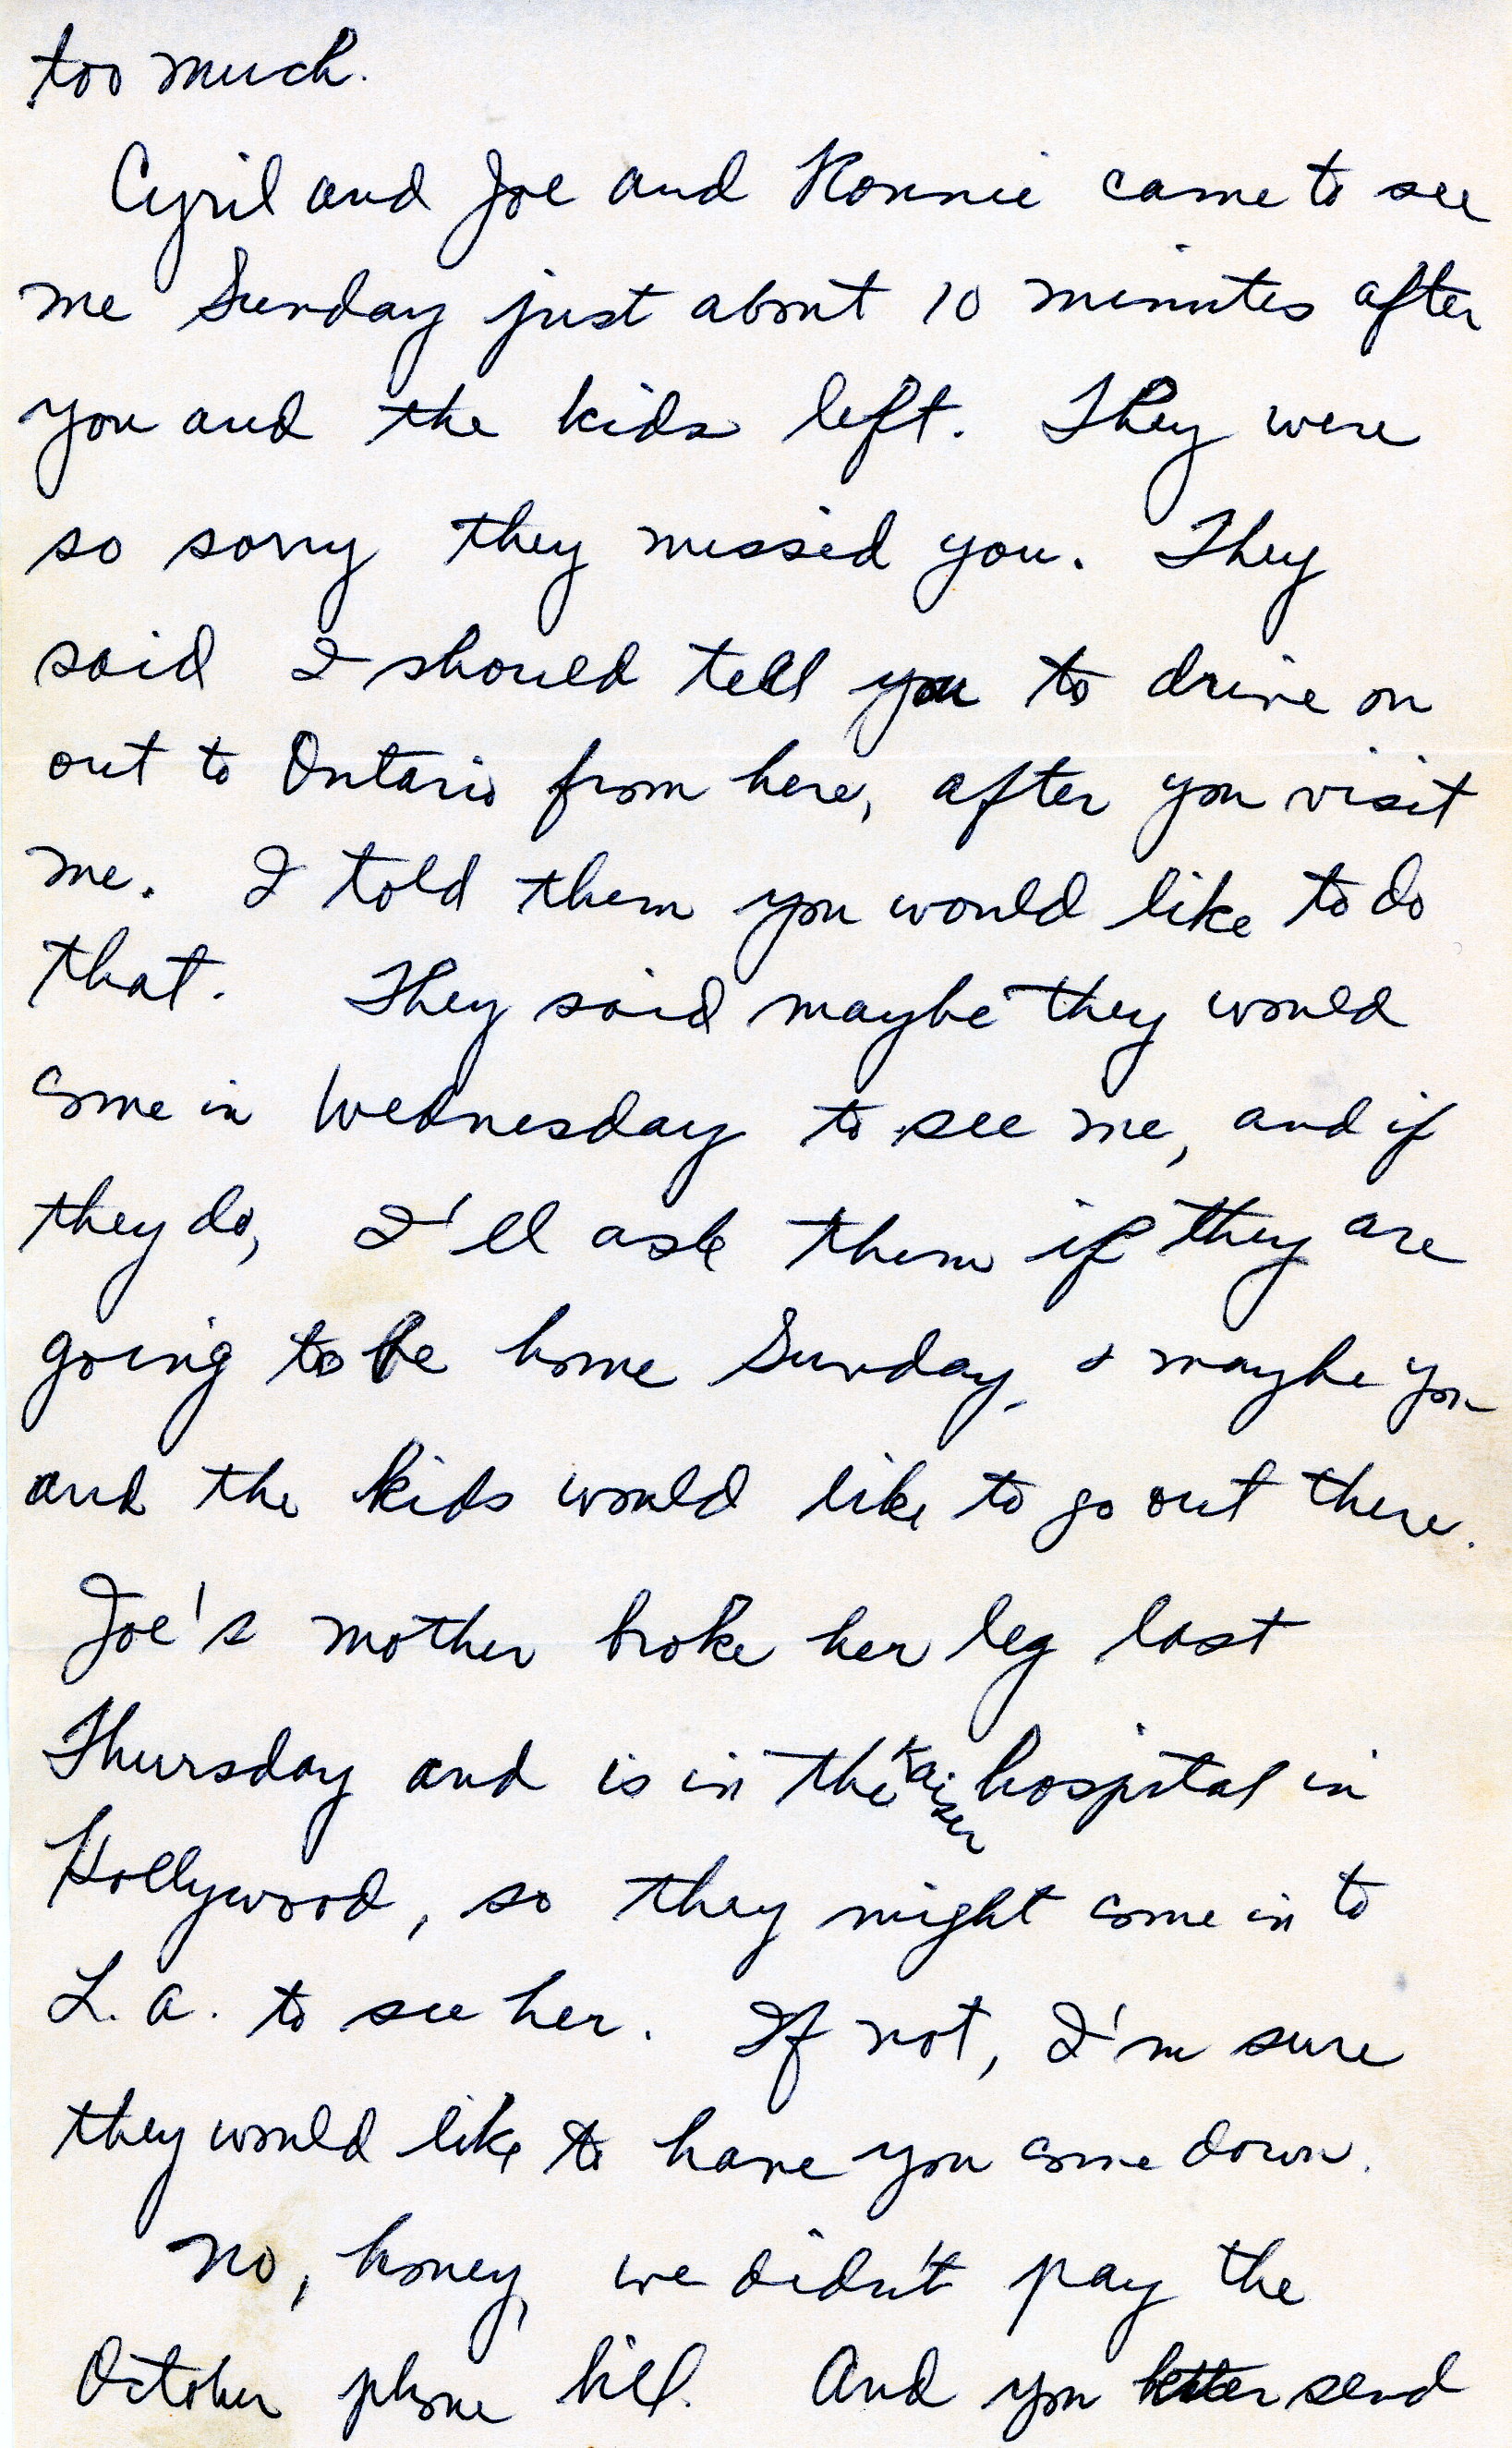 too much.
Cyril and Joe and Ronnie came to see
me Sunday just about 10 minutes after
you and the kids left. They were
so sorry they missed you. They
said I should tell you to drive on
out to Ontario from here, after you visit
me. I told them you would like to do
that. They said maybe they would
come in Wednesday to see me, and if
they do, I'll ask them if they are
going to be home Sunday, & maybe you
and the kids would like to go out there.
Joe's mother broke her leg last
Thursday and is in the Kaiser hospital in
Hollywood, so they might come in to
L.A. to see her. If not, I'm sure
they would like to have you come down.
No, honey, we didn't pay the
October phone bill. And you better send